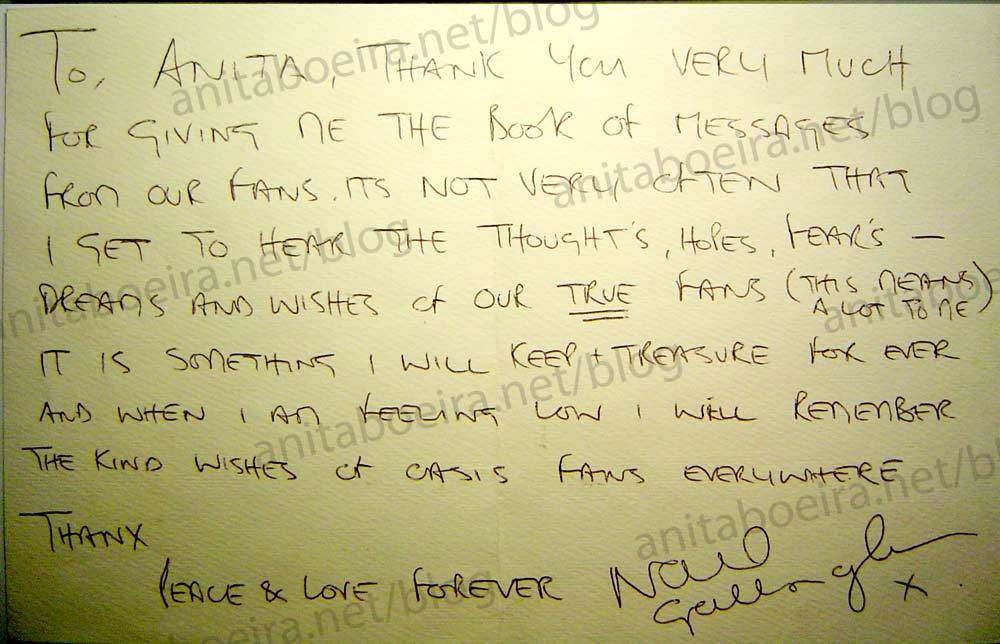 To, ANITA, THANK YOU VERY MUCH
FOR GIVING ME THE BOOK OF MESSAGES
FROM OUR FANS. ITS NOT VERY OFTEN THAT
I GET TO HEAR THE THOUGHT'S, HOPES, FEAR'S —
DREAMS AND WISHES OF OUR TRUE FANS (THIS MEANS
A LOT TO ME)
IT IS SOMETHING I WILL KEEP + TREASURE FOR EVER
AND WHEN I AM FEELING LOW I WILL REMEMBER
THE KIND WISHES OF OASIS FANS EVERYWHERE
THANX
PEACE & LOVE FOREVER Noel
Gallagher
X
anitaboeira.net/blog
anitaboeira.net/blog
anitaboeira.net/blog
anitaboeira.net/blog
anitaboeira.net/blog
anitaboeira.net/blog